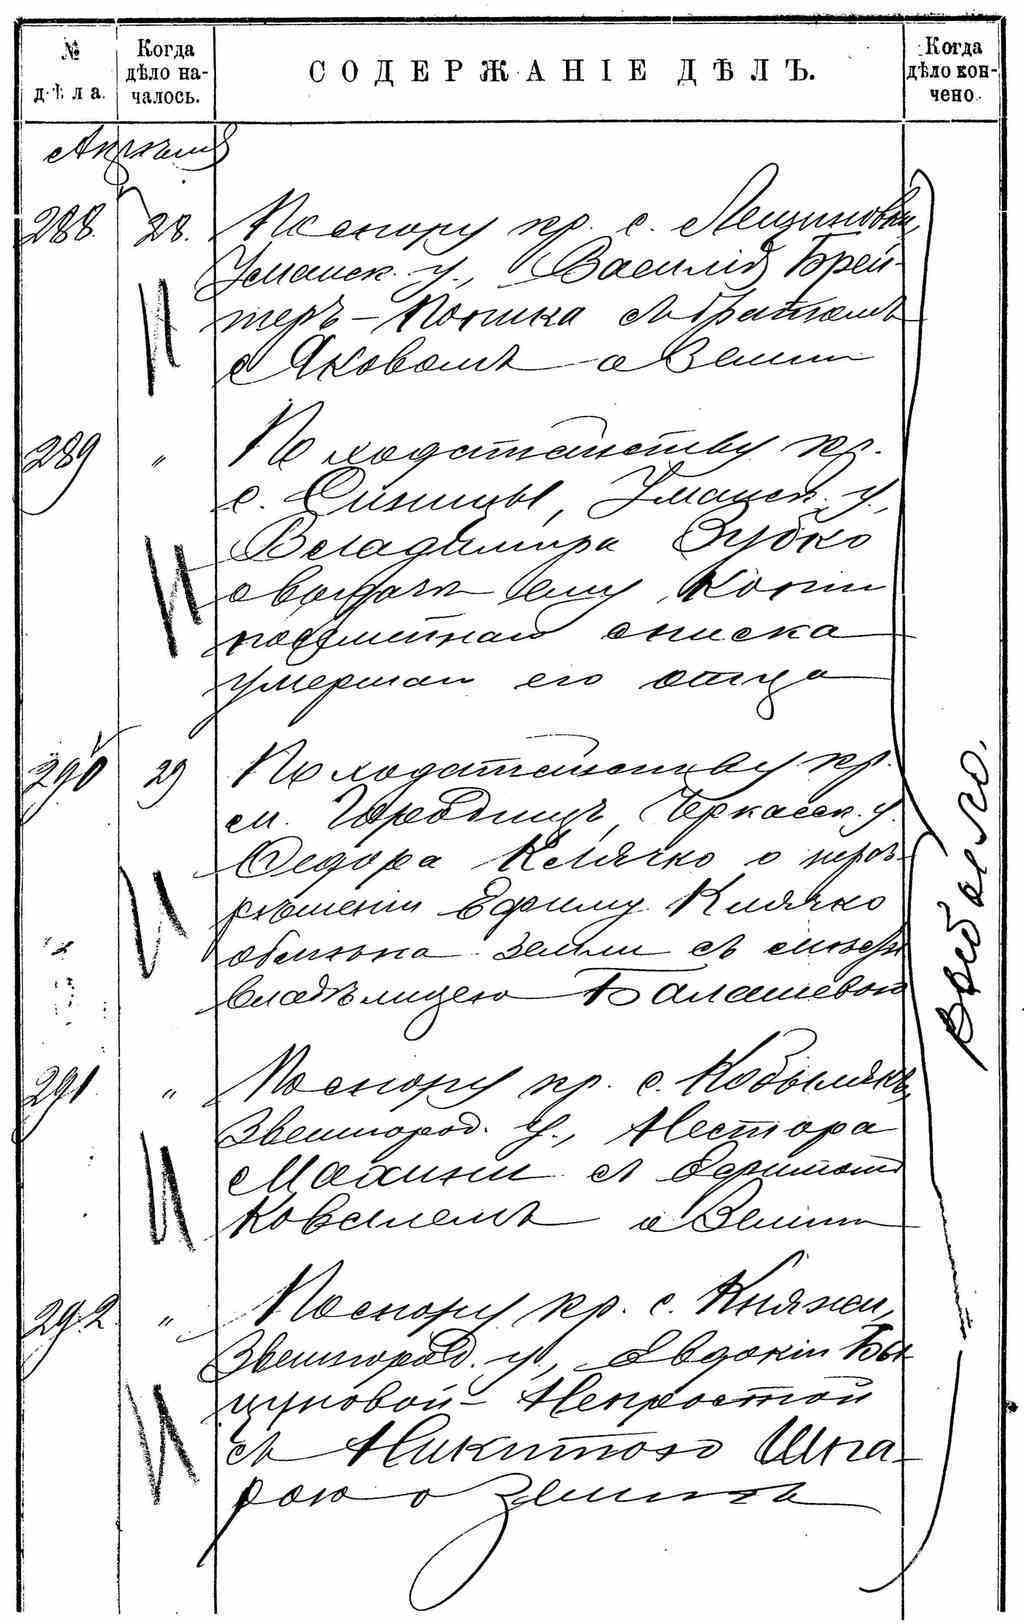 № дѣла.
Когда дѣло началось.
СОДЕРЖАНІЕ ДѢЛЪ.
Когда дѣло кончено.
Апрѣля
288. 28. По спору кр. с. Лещиновки,
Уманск. у., Василія Брей-
теръ-Копика съ братомъ
с Яковомъ о земли
289 " По ходатайству кр.
с. Синицы, Уманск. у.,
Владиміра Зубко
о выдачѣ ему копіи
посемейнаго списка
умершаго его отца
290 29 По ходатайству кр.
м. Городищъ, Черкасск. у.
Ѳедора Клячко о нераз-
рѣшеніи Ефиму Клячко
обмѣна земли съ
владѣлицею Балашевою
291. " По спору кр. с. Кобылякъ,
Звенигород. у., Нестора
Махини съ Ефимомъ
Ковалемъ о земли
292. " По спору кр. с. Княжи,
Звенигород. у., Евдокіи Бы-
цуновой-Непростой
съ Никитою Шка-
рою о землѣ
Выбыло.